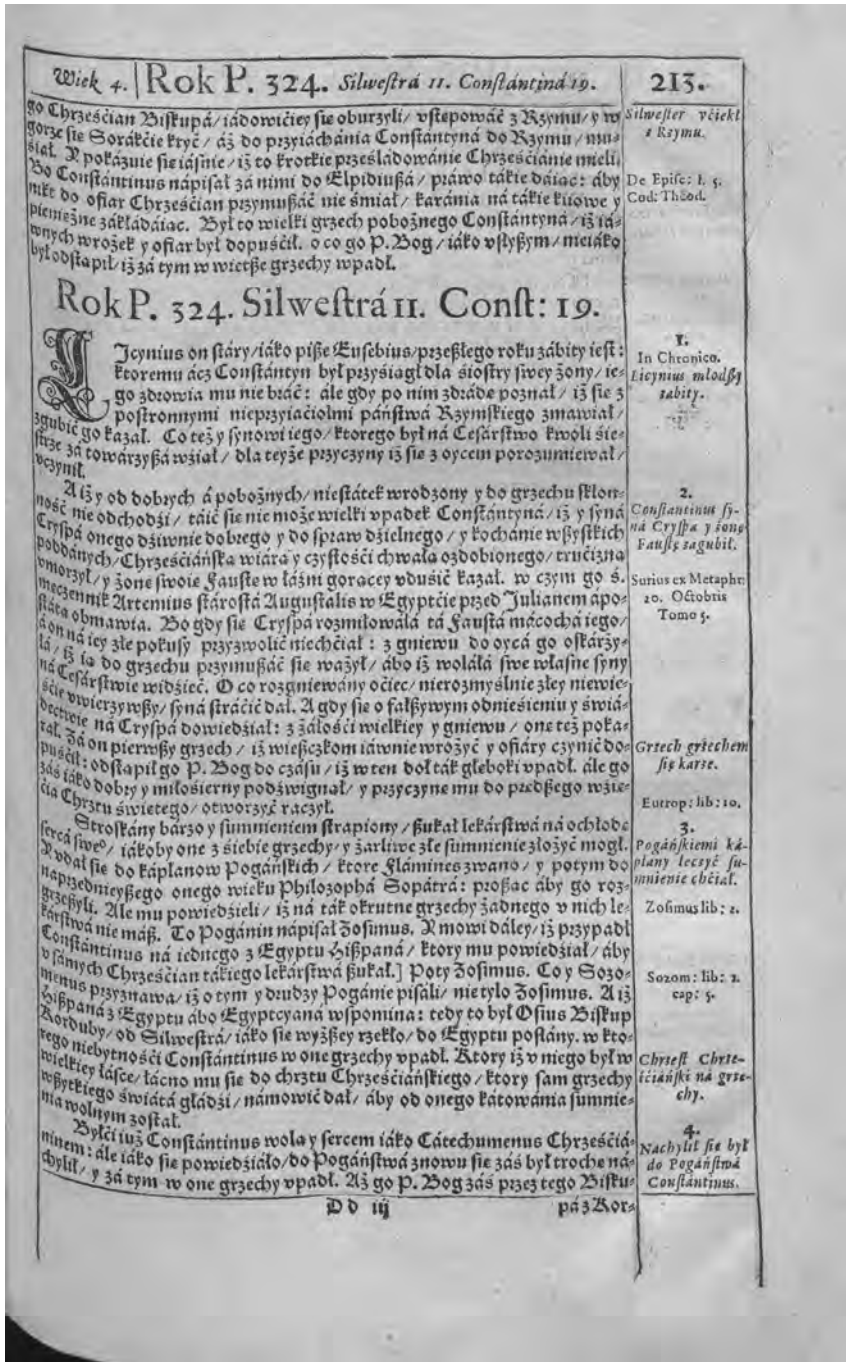 Wiek 4. Rok P. 324. Silwestrá 11. Constántiná 19. 213.
go Chrześćian Biskupá/ iádowićiey sie oburzyli/ vstepowáć z Rzymu/ y w
gorze sie Sorákćie kryć/ áż do przyiáchánia Constántyná do Rzymu/ mu-
śiał. Y pokázuie sie iáśnie/ iż to krotkie prześládowánie Chrześćiánie mieli.
Bo Constántinus nápisał zá nimi do Elpidiußá/ práwo tákie dáiac: áby
nikt do ofiar Chrześćian przymußáć nie śmiał/ karánia ná tákie kiiowe y
pieniężne zákłádáiac. Był to wielki grzech pobożnego Constántyná/ iż iá-
wnych wrożek y ofiar był dopuśćił. o co go P. Bog/ iáko vsłyßym/ nieiáko
był odstąpił/ iż zá tym w wietße grzechy wpadł.
Silwester vćiekł
z Rzymu.
De Episc: l. 5.
Cod: Theod.
Rok P. 324. Silwestrá 11. Const: 19.
LIcynius on stáry/ iáko piße Eusebius/ przeßłego roku zábity iest:
ktoremu ácz Constántyn był przyśiągł dla śiostry swey żony/ ie-
go zdrowia mu nie bráć: ále gdy po nim zdráde poznał/ iż sie z
postronnymi nieprzyiaćiolmi páństwá Rzymskiego zmawiał/
zgubić go kazał. Co też y synowi iego/ ktorego był ná Cesárstwo kwoli śie-
strze zá towárzyßá wźiał/ dla teyże przyczyny iż sie z oycem porozumiewał/
vczynił.
1.
In Chronico.
Licynius młodßy
zabity.
A iż y od dobrych á pobożnych/ niestátek wrodzony y do grzechu skłon-
ność nie odchodźi/ táić sie nie może wielki vpadek Constántyná/ iż y syná
Cryspá onego dźiwnie dobrego y do spraw dźielnego/ y kochánie wßystkich
poddánych/ Chrześćiáńska wiárą y czystośći chwałą ozdobionego/ trućizną
vmorzył/ y żone swoie Fauste w łáźni gorącey vdusić kazał. w czym go ś.
męczennik Artemius stárostá Augustalis w Egyptćie przed Julianem apo-
státą obmawia. Bo gdy sie Cryspá rozmiłowáłá tá Faustá mácochá iego/
á on ná iey złe pokusy przyzwolić niechćiał: z gniewu do oycá go oskárży-
łá/ iż ią do grzechu przymußáć sie ważył/ ábo iż woláłá swe własne syny
ná Cesárstwie widźieć. O co rozgniewány oćiec/ nierozmyślnie złey niewie-
śćie vwierzywßy/ syná stráćić dał. A gdy sie o fałßywym odnieśieniu y świá-
dectwie ná Cryspá dowiedźiał: z żáłośći wielkiey y gniewu/ one też poká-
rał. Zá on pierwßy grzech/ iż wießczkom iáwnie wrożyć y ofiáry czynić do-
puśćił: odstąpił go P. Bog do czásu/ iż w ten doł ták głęboki vpadł. ále go
zás iáko dobry y miłośierny podźwignął/ y przyczyne mu do predßego wźie-
ćia Chrztu świetego/ otworzyć raczył.
2.
Constantinus sy-
ná Cryspa y żonę
Faustę zagubił.
Surius ex Metaphr:
20. Octobris
Tomo 5.
Grzech grzechem
się karze.
Eutrop: lib: 10.
Stroskány bárzo y summieniem strapiony/ ßukał lekárstwá ná ochłode
sercá swe⁰/ iákoby one z siebie grzechy/ y żarliwe złe sumnienie złożyć mogł.
Y vdał sie do káplanow Pogáńskich/ ktore Flámines zwano/ y potym do
naprzednieyßego onego wieku Philozophá Sopátrá: proßac áby go roz-
grzeßyli. Ale mu powiedźieli/ iż ná ták okrutne grzechy żadnego v nich le-
kárstwá nie máß. To Pogánin nápisał Zosimus. Y mowi dáley/ iż przypadł
Constántinus ná iednego z Egyptu Hißpaná/ ktory mu powiedźiał/ áby
v sámych Chrześćian tákiego lekárstwá ßukał.] Poty Zosimus. Co y Sozo-
menus przyznawa/ iż o tym y drudzy Pogánie pisáli/ nie tylo Zosimus. A iż
Hißpaná z Egyptu ábo Egyptcyaná wspomina: tedy to był Osius Biskup
Korduby/ od Silwestrá/ iáko sie wyżßey rzekło/ do Egyptu posłány. w kto-
rego niebytnośći Constántinus w one grzechy vpadł. Ktory iż v niego był w
wielkiey łásce/ łácno mu sie do chrztu Chrześćiáńskiego/ ktory sam grzechy
wßytkiego świátá głádźi/ námowić dał/ áby od onego kátowánia sumnie-
nia wolnym został.
3.
Pogáńskiemi ká-
płany leczyć su-
mnienie chćiał.
Zosimus lib: 2.
Sozom: lib: 2.
cap: 5.
Chrzest Chrze-
śćiáński ná grze-
chy.
Byłći iuż Constántinus wolą y sercem iáko Cátechumenus Chrześćiá-
ninem: ále iáko sie powiedźiáło/ do Pogáństwá znowu sie zás był troche ná-
chylił/ y zá tym w one grzechy vpadł. Aż go P. Bog zás przez tego Bisku-
4.
Nachylił się był
do Pogáństwá
Constántinus.
D d iij pá z Kor-